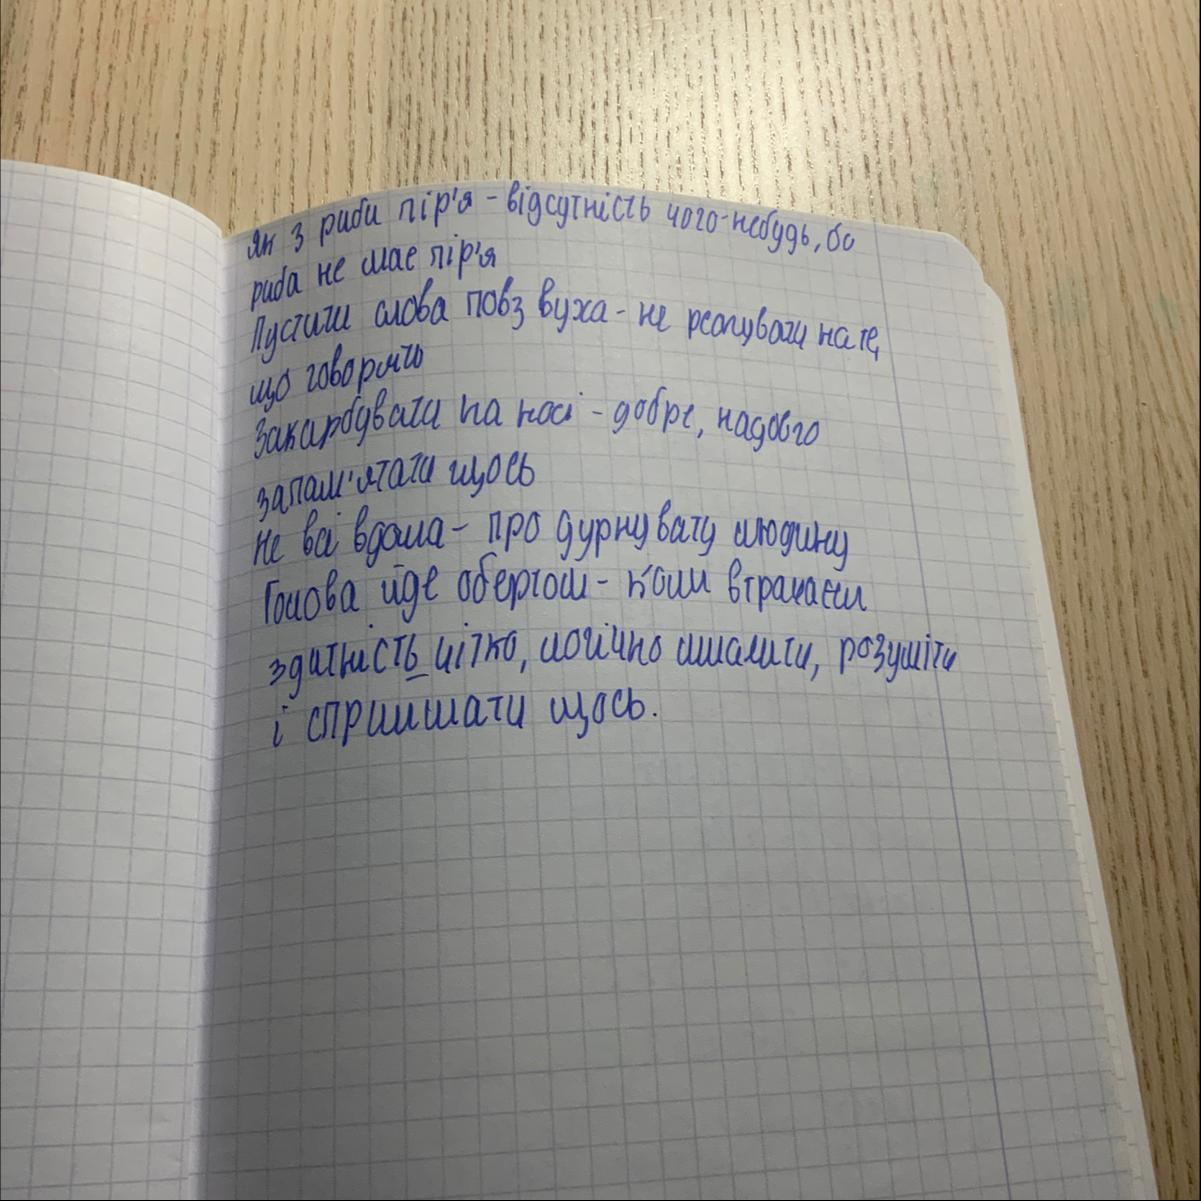 Як з риби пір'я - відсутність чого-небудь, бо
риба не має пір'я
Пустити слова повз вуха - не реагувати на те,
що говорять
Закарбувати на носі - добре, надовго
запам'ятати щось
Не всі вдома - про дурнувату людину
Голова йде обертом - коли втрачаєш
здатність чітко, логічно мислити, розуміти
і сприймати щось.